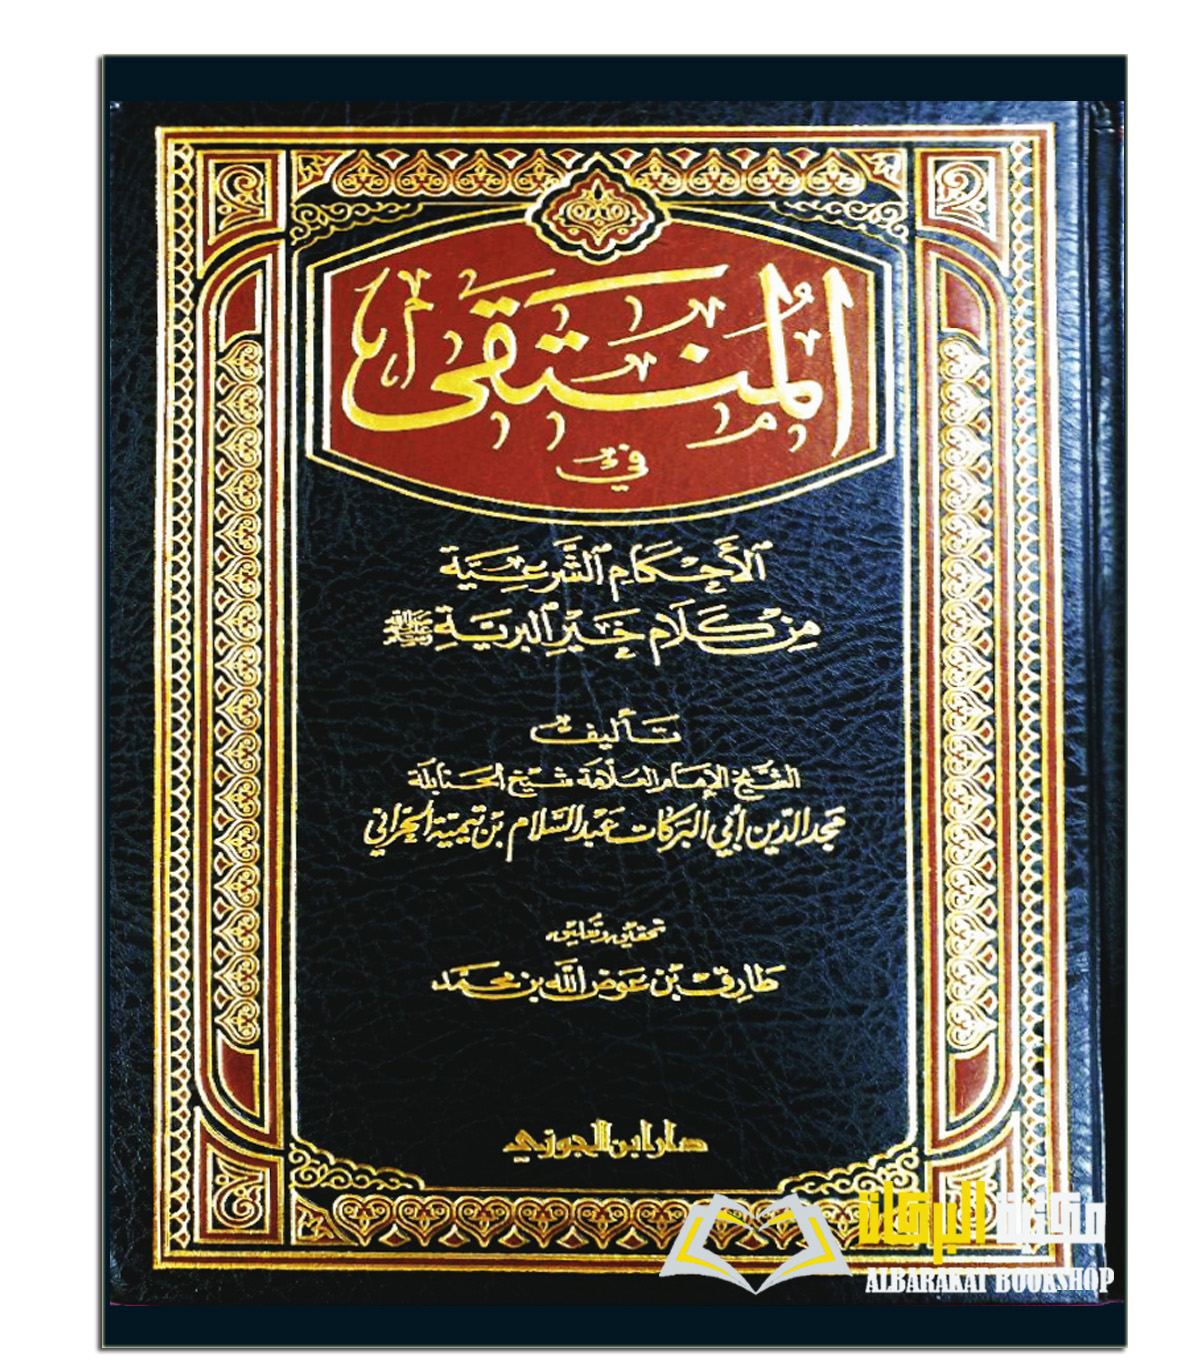 المُنتقى
في
الأحكام الشَّرعيَّة
من كلام خير البرية ﷺ
تأليف
الشَّيخ الإمام العلّامة شيخ الحنابلة
مجد الدّين أبي البركات عبد السّلام بن تيميّة الحرّاني
تحقيق وتعليق
طارق بن عوض الله بن محمد
دار ابن الجوزي
مكتبة البركات
ALBARAKAT BOOKSHOP